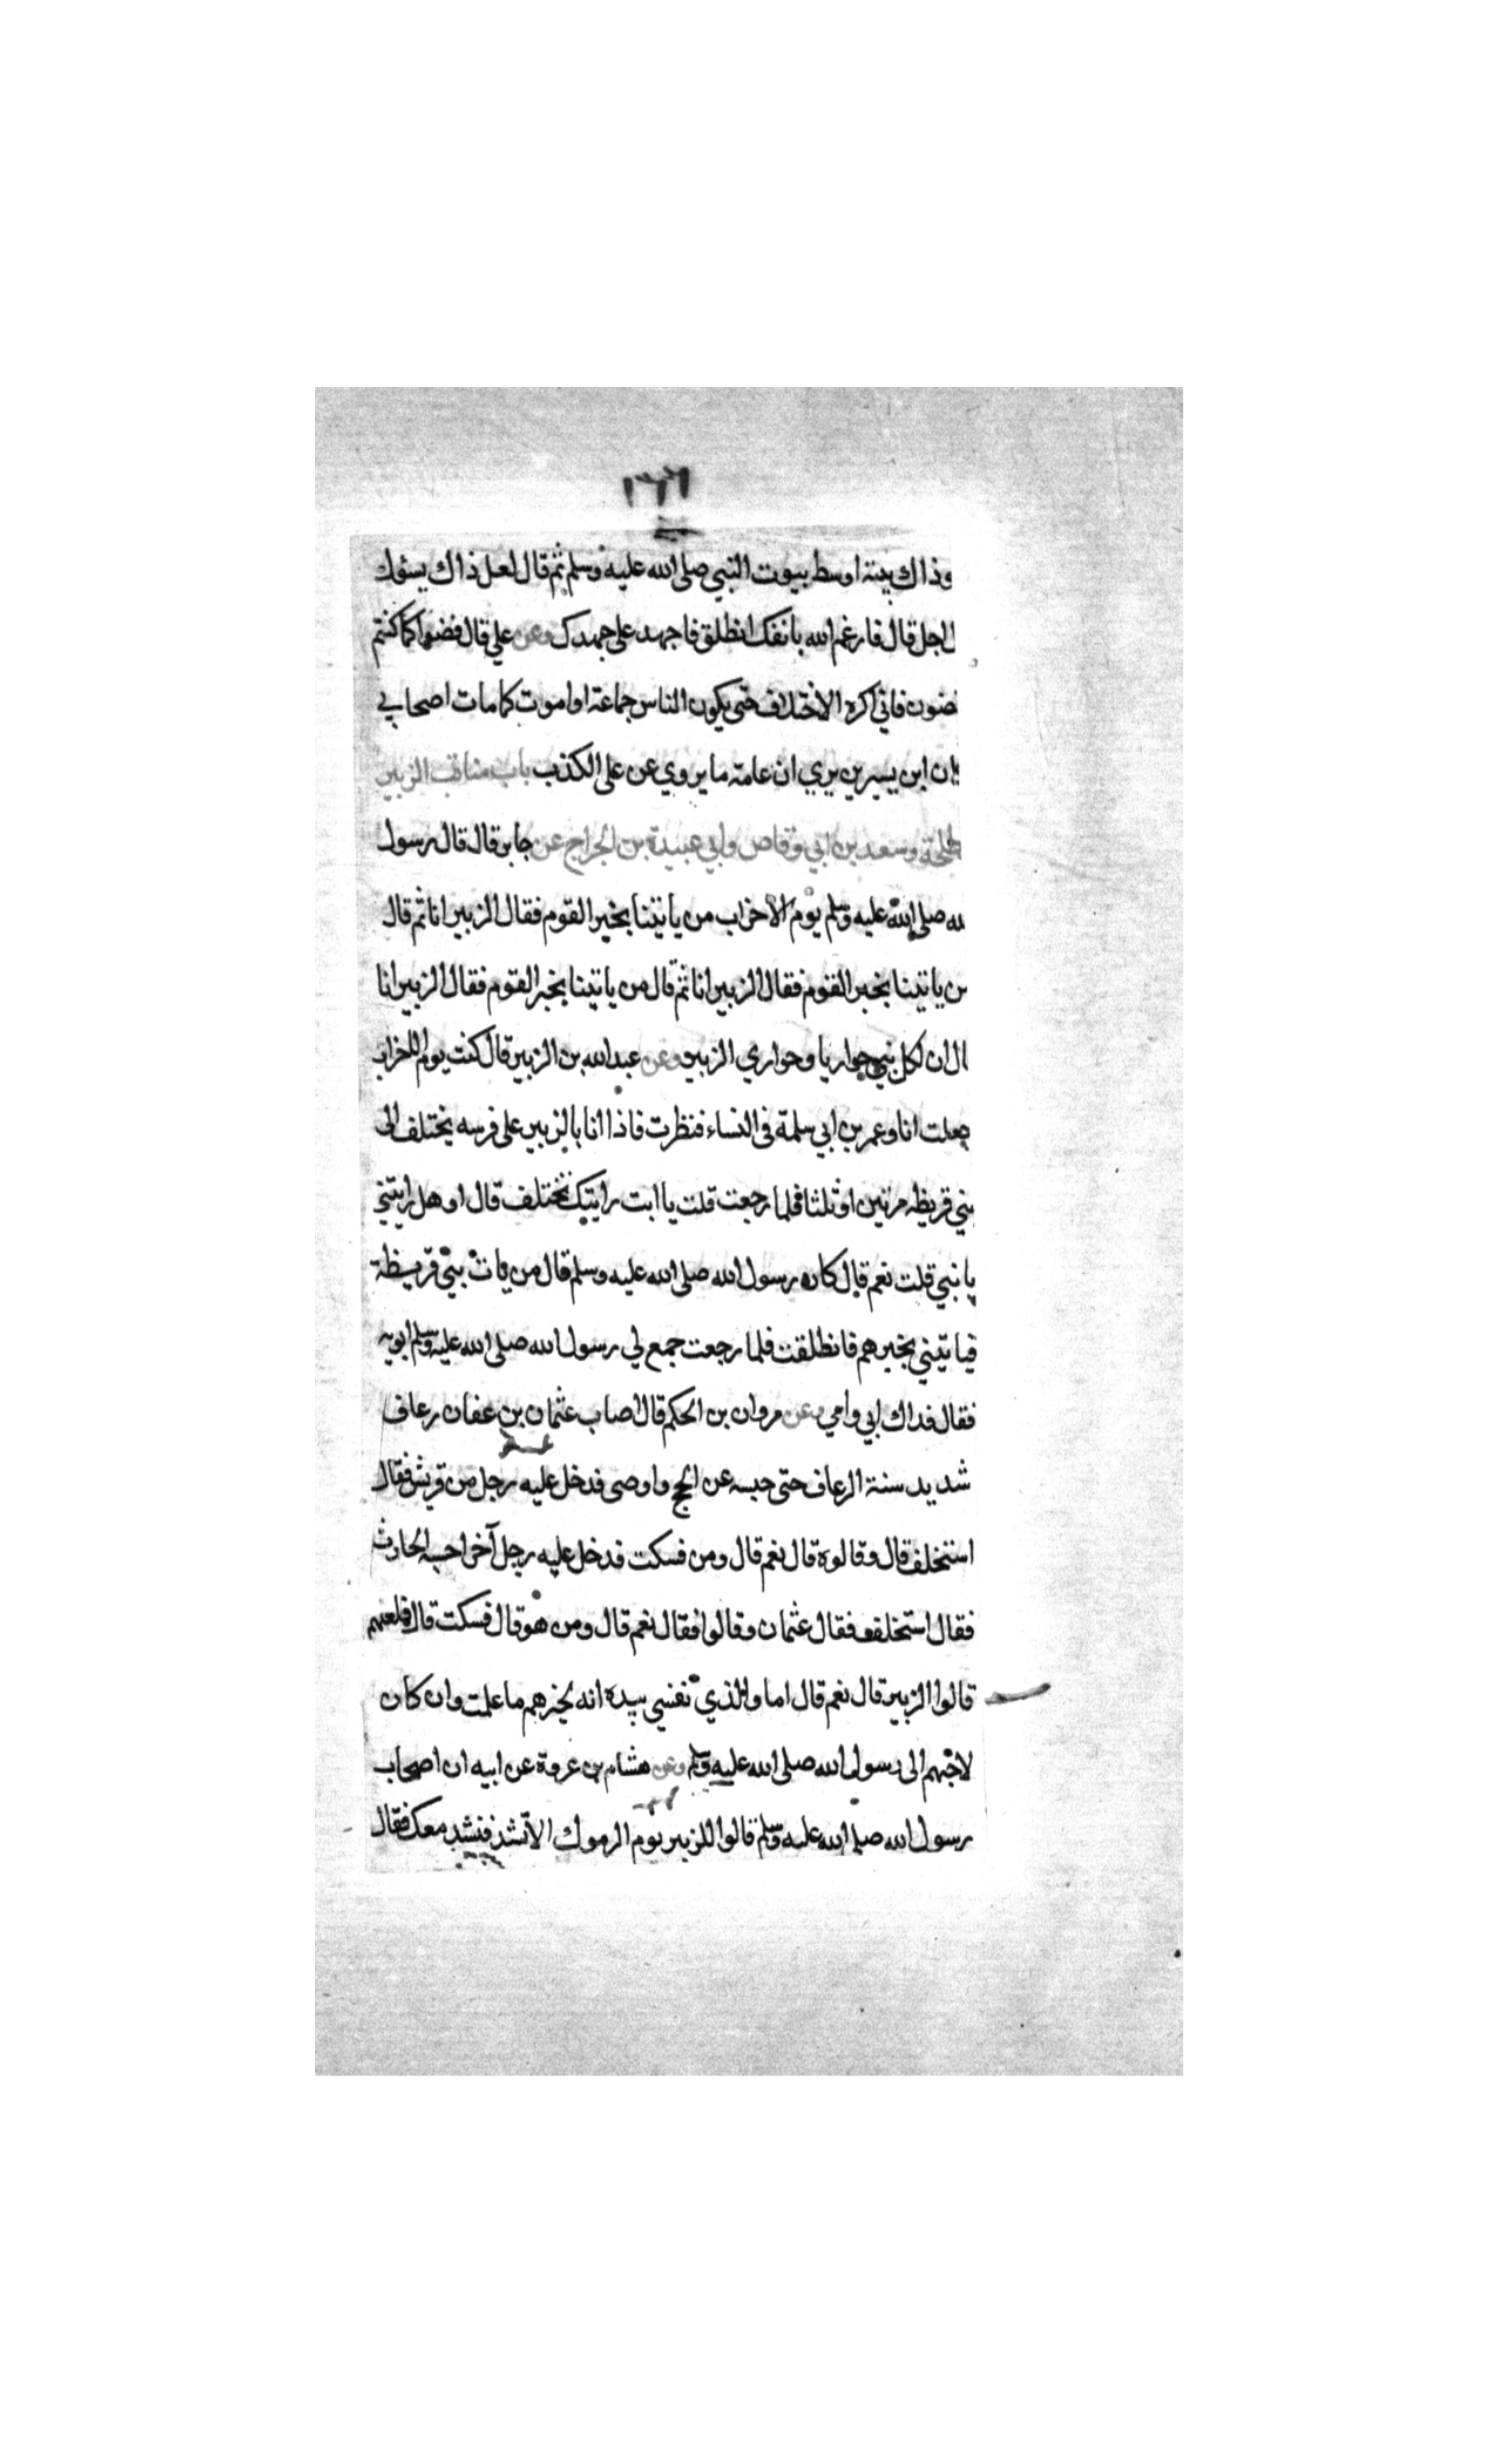 ١٦٦
وذاك بيته اوسط بيوت النبي صلى الله عليه وسلم ثم قال لعل ذاك يسؤك
اجل قال فارغم الله بانفك انطلق فاجهد على جهدك وعن علي قال فضوا كما كنتم
ضون فاني اكره الاختلاف حتى يكون الناس جماعة او اموت كما مات اصحابي
ان ابن سيرين يري ان عامة ما يروي عن على الكذب باب مناقب الزبير
طلحة وسعد بن ابي وقاص وابي عبيدة بن الجراح عن جابر قال قال رسول
لله صلى الله عليه وسلم يوم الاحزاب من ياتينا بخبر القوم فقال الزبير انا ثم قال
من ياتينا بخبر القوم فقال الزبير انا ثم قال من ياتينا بخبر القوم فقال الزبير انا
ال ان لكل نبي حواريا وحواري الزبير وعن عبد الله بن الزبير قال كنت يوم الاحزاب
جعلت انا وعمر بن ابي سلمة فى النساء فنظرت فاذا انا بالزبير على فرسه يختلف الى
بني قريظه مرتين او ثلثا فلما رجعت قلت يا ابت رايتك تختلف قال او هل رايتني
يا نبي قلت نعم قال كان رسول الله صلى الله عليه وسلم قال من يات بني قريظة
فياتيني بخبرهم فانطلقت فلما رجعت جمع لي رسول الله صلى الله عليه وسلم ابويه
فقال فداك ابي وامي وعن مروان بن الحكم قال اصاب عثمان بن عفان رعاف
شديد سنة الرعاف حتى حبسه عن الحج واوصى فدخل عليه رجل من قريش فقال
استخلف قال وقالوه قال نعم قال ومن فسكت فدخل عليه رجل آخر احسبه الحارث
فقال استخلف فقال عثمان وقالوا فقال نعم قال ومن هو قال فسكت قال فلعلهم
قالوا الزبير قال نعم قال اما والذي نفسي بيده انه لخيرهم ما علمت وان كان
لاحبهم الى رسول الله صلى الله عليه وسلم وعن هشام بن عروة عن ابيه ان اصحاب
رسول الله صلى الله عليه وسلم قالوا للزبير يوم الرموك الا تشد فنشد معك فقال